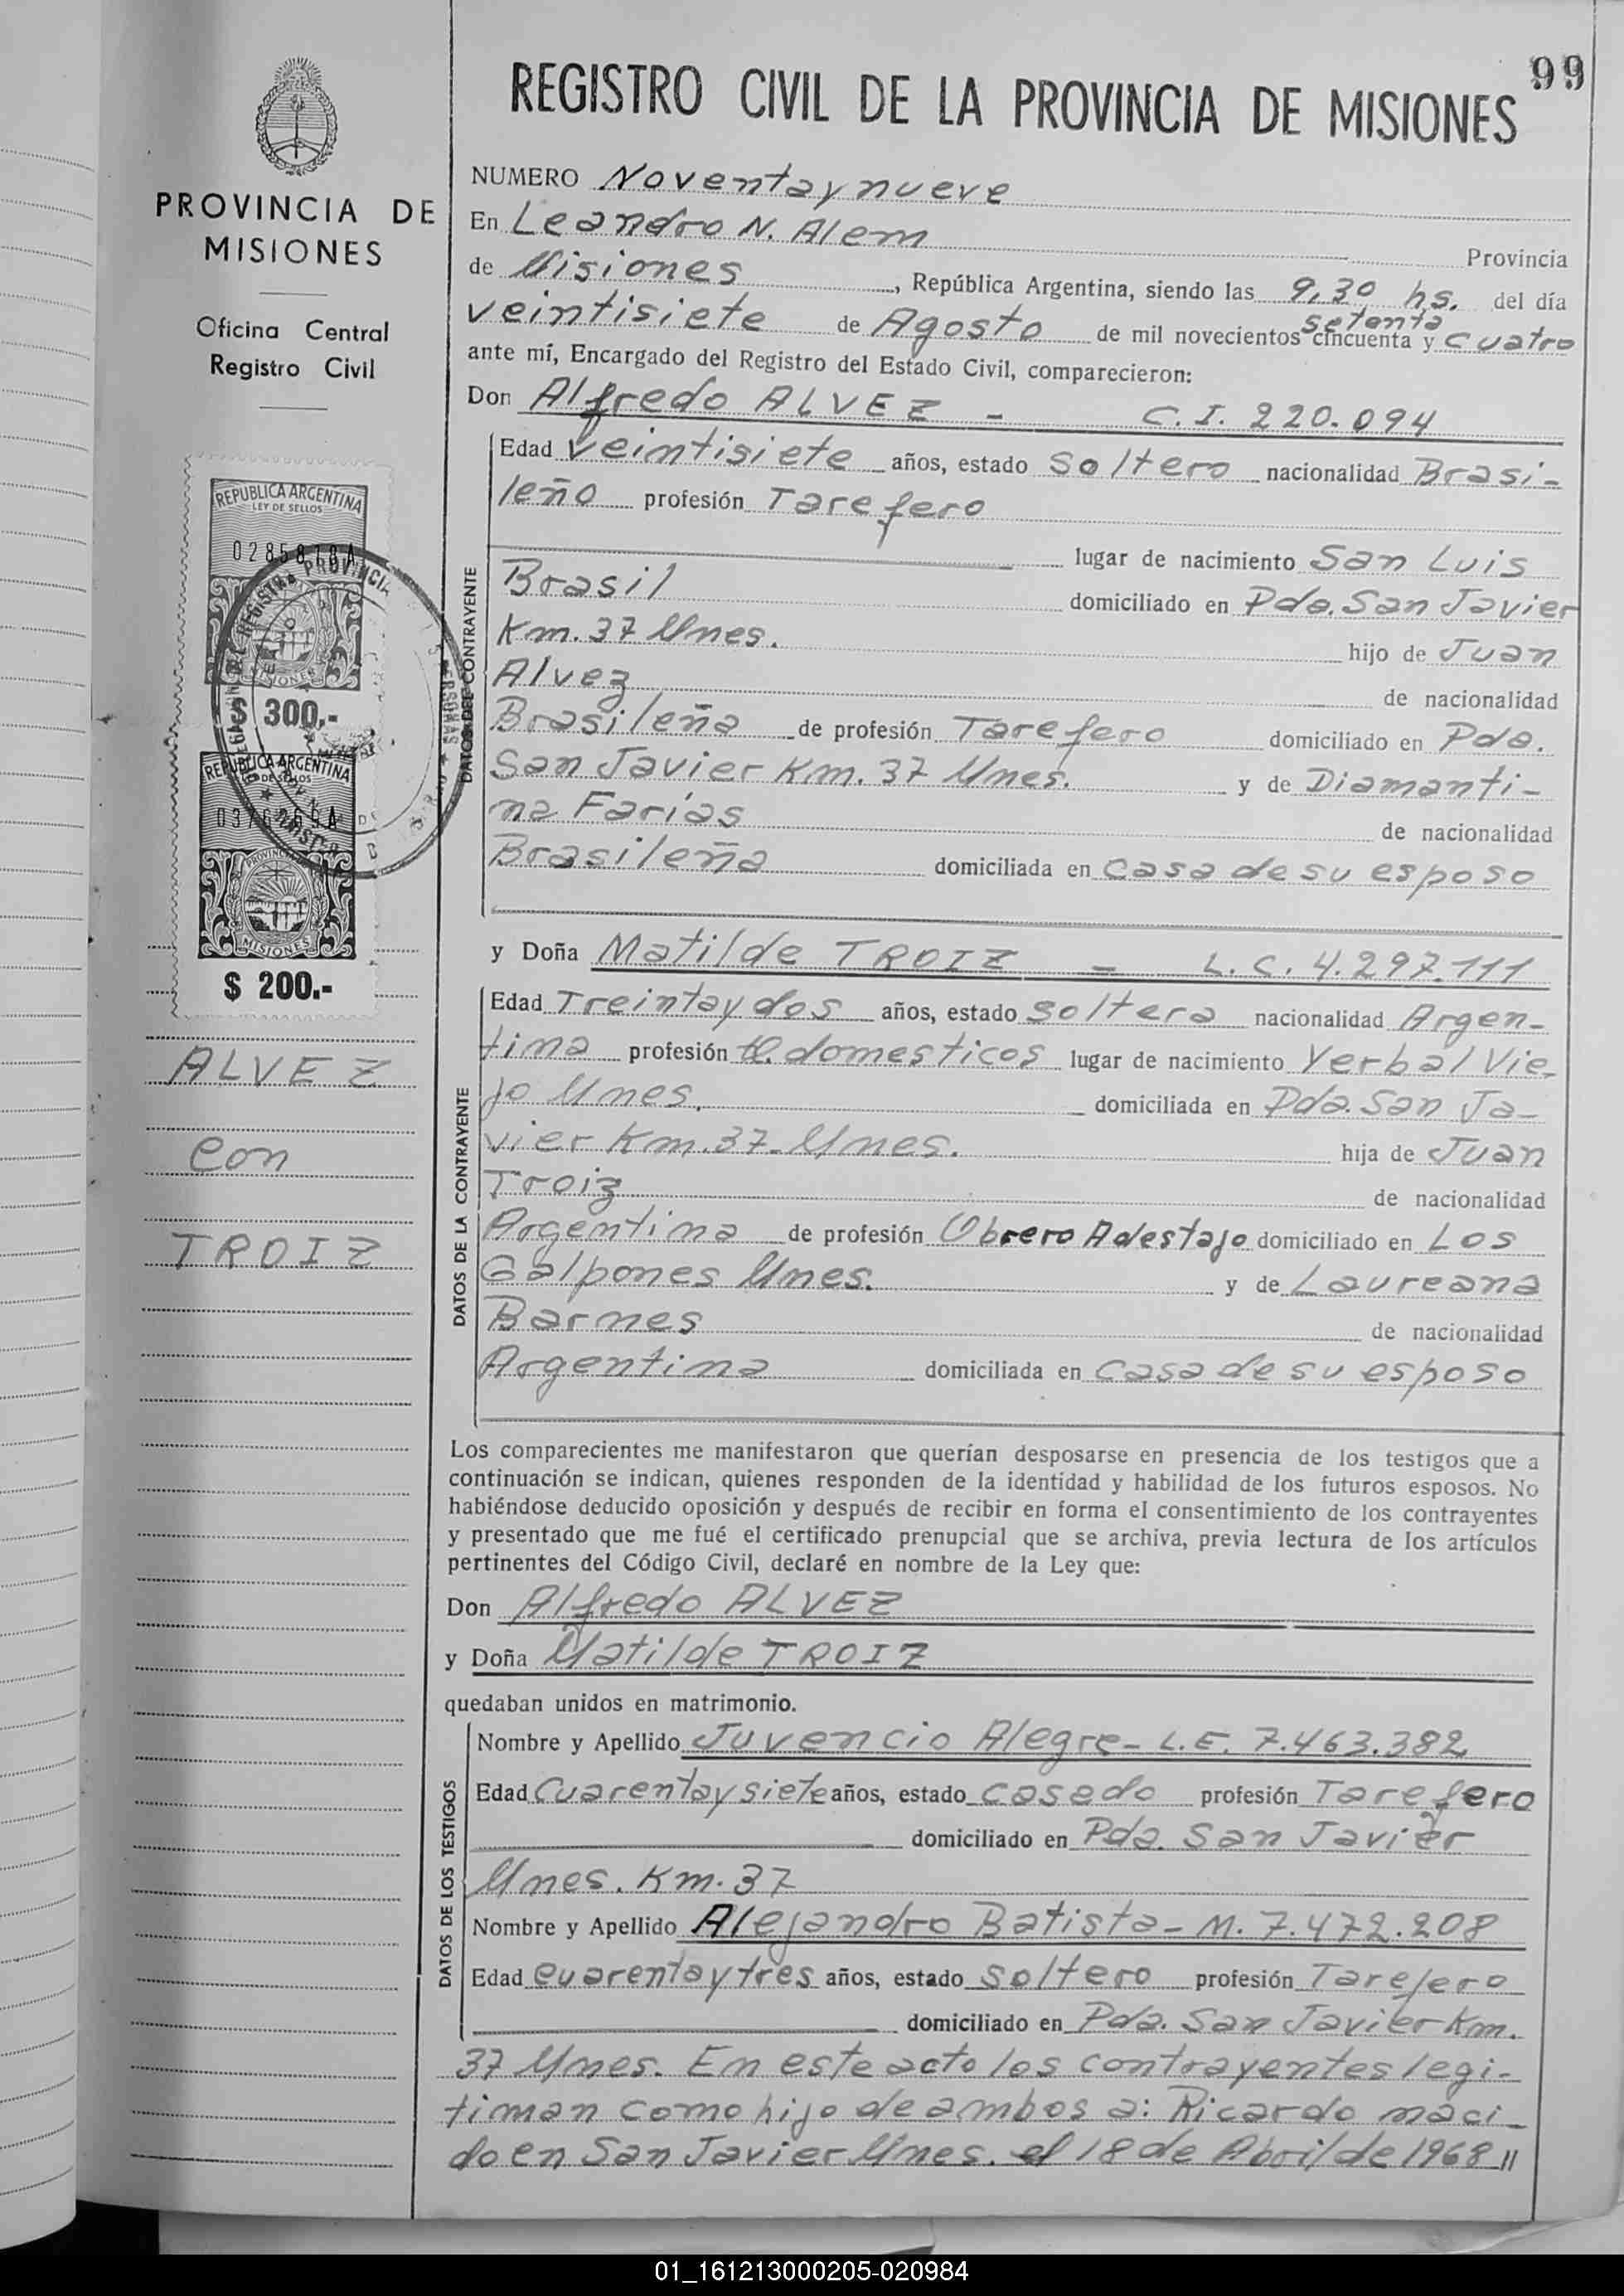 99
REGISTRO CIVIL DE LA PROVINCIA DE MISIONES
PROVINCIA DE
MISIONES
Oficina Central
Registro Civil
REPUBLICA ARGENTINA
LEY DE SELLOS
MISIONES
$ 300.-
REPUBLICA ARGENTINA
LEY DE SELLOS
PROVINCIA
MISIONES
$ 200.-
ALVEZ
con
TROIZ
NUMERO Noventa y nueve
En Leandro N. Alem Provincia
de Misiones, República Argentina, siendo las 9,30 hs. del día
setenta
veintisiete de Agosto de mil novecientos cincuenta y cuatro
ante mí, Encargado del Registro del Estado Civil, comparecieron:
Don Alfredo ALVEZ - C.I. 220.094
DATOS DEL CONTRAYENTE
Edad veintisiete años, estado soltero nacionalidad Brasi-
leño profesión Tarefero
lugar de nacimiento San Luis
Brasil domiciliado en Pda. San Javier
Km. 37 Mnes. hijo de Juan
Alvez de nacionalidad
Brasileña de profesión Tarefero domiciliado en Pda.
San Javier Km. 37 Mnes. y de Diamanti-
na Farías de nacionalidad
Brasileña domiciliada en casa de su esposo
y Doña Matilde TROIZ - L.C. 4.297.111
DATOS DE LA CONTRAYENTE
Edad Treinta y dos años, estado soltera nacionalidad Argen-
tina profesión Q. domesticos lugar de nacimiento Yerbal Vie-
jo Mnes. domiciliada en Pda. San Ja-
vier Km. 37 - Mnes. hija de Juan
Troiz de nacionalidad
Argentina de profesión Obrero Adestajo domiciliado en Los
Galpones Mnes. y de Laureana
Barnes de nacionalidad
Argentina domiciliada en casa de su esposo
Los comparecientes me manifestaron que querían desposarse en presencia de los testigos que a
continuación se indican, quienes responden de la identidad y habilidad de los futuros esposos. No
habiéndose deducido oposición y después de recibir en forma el consentimiento de los contrayentes
y presentado que me fué el certificado prenupcial que se archiva, previa lectura de los artículos
pertinentes del Código Civil, declaré en nombre de la Ley que:
Don Alfredo ALVEZ
y Doña Matilde TROIZ
quedaban unidos en matrimonio.
DATOS DE LOS TESTIGOS
Nombre y Apellido Juvencio Alegre - L.E. 7.463.382
Edad Cuarenta y siete años, estado casado profesión Tarefero
domiciliado en Pda. San Javier
Mnes. Km. 37
Nombre y Apellido Alejandro Batista - M. 7.472.208
Edad cuarenta y tres años, estado soltero profesión Tarefero
domiciliado en Pda. San Javier Km.
37 Mnes. En este acto los contrayentes legi-
timan como hijo de ambos a: Ricardo naci-
do en San Javier Mnes. el 18 de Abril de 1968 //
01_161213000205-020984